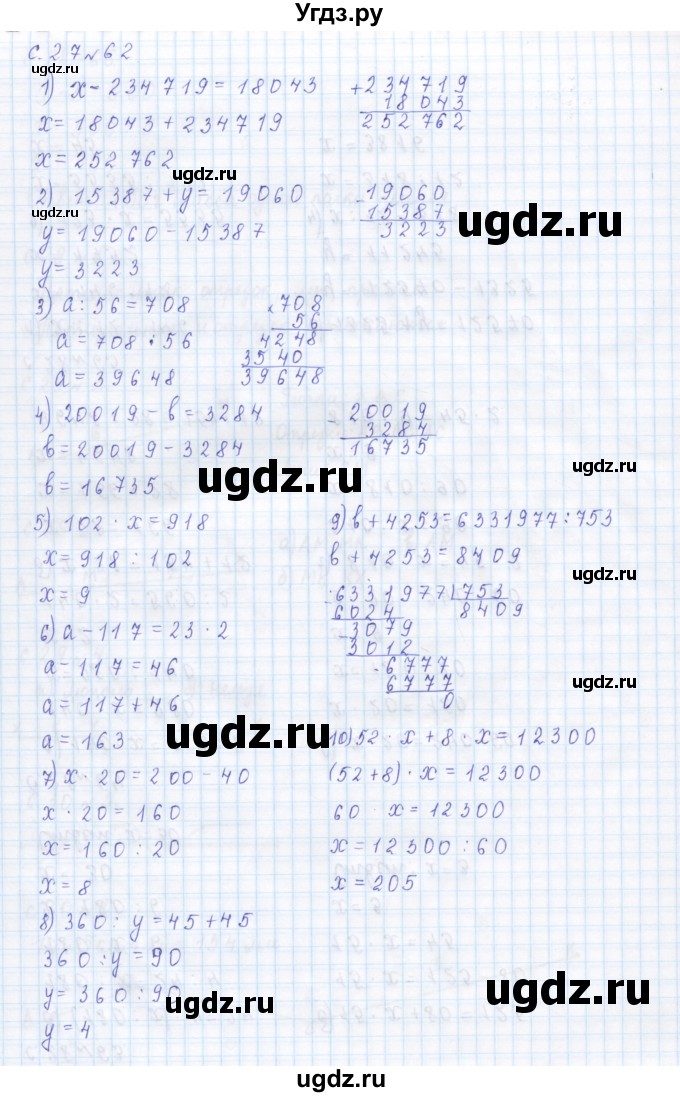 Угдз.ру
с. 27 № 62
ugdz.ru
1) x - 234 719 = 18043
x = 18043 + 234719
x = 252 762
+ 234 719
18 043
252 762
ugdz.ru
ugdz.ru
2) 15387 + y = 19060
ugdz.ru
y = 19060 - 15387
y = 3223
- 19060
15387
3223
ugdz.ru
3) a : 56 = 708
a = 708 · 56
a = 39648
× 708
56
4248
3540
39648
4) 20019 - b = 3284
b = 20019 - 3284
b = 16735
- 20019
3284
16735
ugdz.ru
ugdz.ru
5) 102 · x = 918
x = 918 : 102
x = 9
6) a - 117 = 23 · 2
a - 117 = 46
a = 117 + 46
a = 163
ugdz.ru
7) x · 20 = 200 - 40
x · 20 = 160
x = 160 : 20
x = 8
8) 360 : y = 45 + 45
360 : y = 90
y = 360 : 90
ugdz.ru
y = 4
9) b + 4253 = 6331977 : 753
b + 4253 = 8409
ugdz.ru
- 6331977 | 753
6024 8409
- 3079
3012
- 6777
6777
0
ugdz.ru
10) 52 · x + 8 · x = 12300
(52 + 8) · x = 12300
60 · x = 12300
x = 12300 : 60
x = 205
ugdz.ru
ugdz.ru